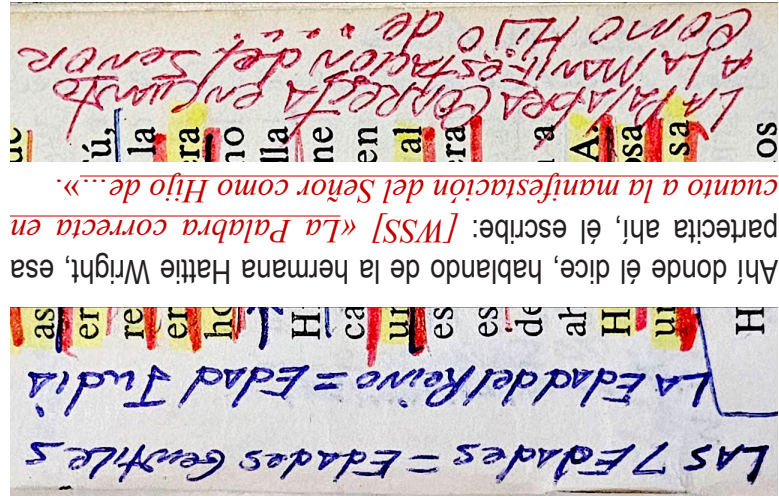 LAS 7 Edades = Edades Gentiles
LA Edad del Reino = Edad Judía
Ahí donde él dice, hablando de la hermana Hattie Wright, esa
partecita ahí, él escribe: [WSS] «La Palabra correcta en
cuanto a la manifestación del Señor como Hijo de...».
LA PALABRA CORRECTA EN CUANTO
A LA MANIFESTACIÓN DEL SEÑOR
COMO HIJO de ...